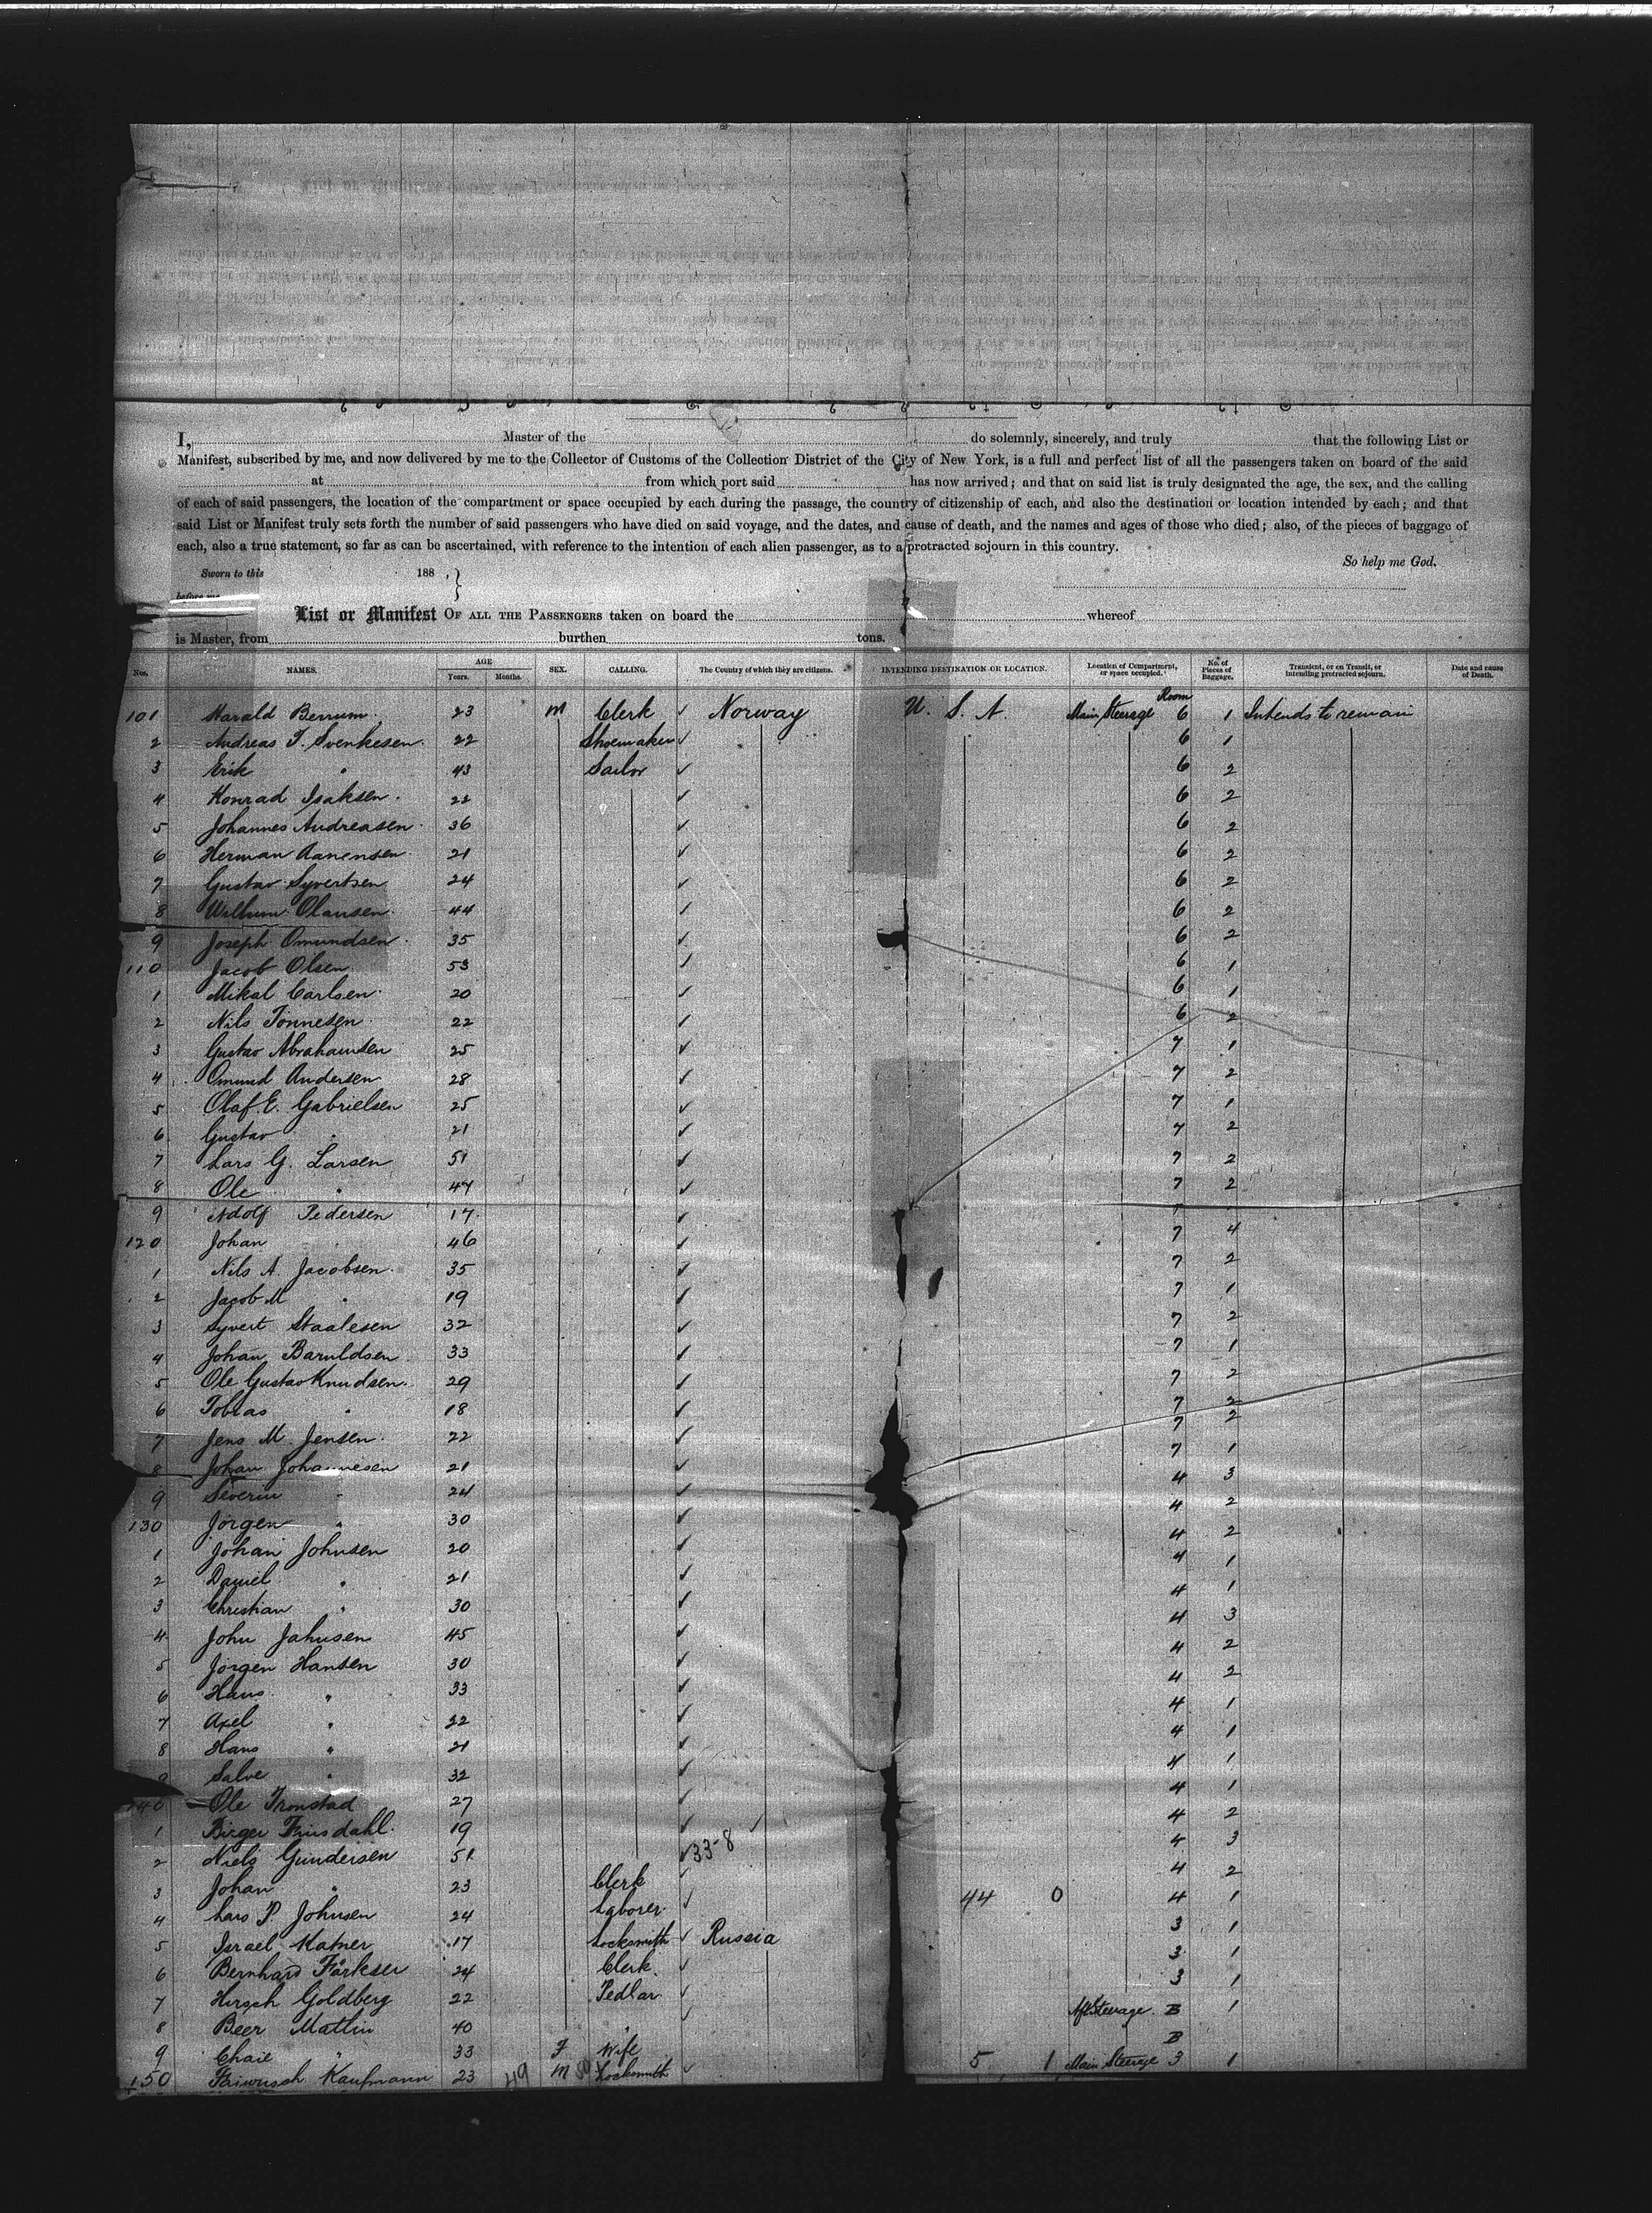 I, Master of the do solemnly, sincerely, and truly that the following List or
Manifest, subscribed by me, and now delivered by me to the Collector of Customs of the Collection District of the City of New York, is a full and perfect list of all the passengers taken on board of the said
at from which port said has now arrived; and that on said list is truly designated the age, the sex, and the calling
of each of said passengers, the location of the compartment or space occupied by each during the passage, the country of citizenship of each, and also the destination or location intended by each; and that
said List or Manifest truly sets forth the number of said passengers who have died on said voyage, and the dates, and cause of death, and the names and ages of those who died; also, of the pieces of baggage of
each, also a true statement, so far as can be ascertained, with reference to the intention of each alien passenger, as to a protracted sojourn in this country.
So help me God.
Sworn to this 188 ,}
before me
List or Manifest OF ALL THE PASSENGERS taken on board the whereof
is Master, from burthen tons.
Nos. NAMES. AGE Years. Months. SEX. CALLING. The Country of which they are citizens. INTENDING DESTINATION OR LOCATION. Location of Compartment, or space occupied. No. of Pieces of Baggage. Transient, or on Transit, or intending protracted sojourn. Date and cause of Death.
Room
101 Harald Berrum 23 M Clerk ✓ Norway U. S. A. Main Steerage 6 1 Intends to remain
2 Andreas T. Svenkesen 22 Shoemaker ✓ 6 1
3 Erik " 43 Sailor ✓ 6 2
4 Konrad Isaksen 22 ✓ 6 2
5 Johannes Andreasen 36 ✓ 6 2
6 Herman Aanensen 21 ✓ 6 2
7 Gustav Syvertsen 24 ✓ 6 2
8 Willum Olausen 44 ✓ 6 2
9 Joseph Omundsen 35 ✓ 6 2
110 Jacob Olsen 53 ✓ 6 1
1 Mikal Carlsen 20 ✓ 6 1
2 Nils Tönnesen 22 ✓ 6 2
3 Gustav Abrahamsen 25 ✓ 7 1
4 Omund Andersen 28 ✓ 7 2
5 Olaf E. Gabrielsen 25 ✓ 7 1
6 Gustav " 21 ✓ 7 2
7 Lars G. Larsen 51 ✓ 7 2
8 Ole " 47 ✓ 7 2
9 Adolf Pedersen 17 ✓
120 Johan " 46 ✓ 7 4
1 Nils A. Jacobsen 35 ✓ 7 2
2 Jacob M " 19 ✓ 7 1
3 Syvert Staalesen 32 ✓ 7 2
4 Johan Baruldsen 33 ✓ 7 1
5 Ole Gustav Knudsen 29 ✓ 7 2
6 Tobias " 18 ✓ 7 2
7 2
7 Jens M Jensen 22 ✓ 7 1
8 Johan Johannesen 21 ✓ 4 3
9 Severin " 24 ✓ 4 2
130 Jörgen " 30 ✓ 4 2
1 Johan Johnsen 20 ✓ 4 1
2 Daniel " 21 ✓ 4 1
3 Christian " 30 ✓ 4 3
4 John Jahnsen 45 ✓ 4 2
5 Jörgen Hansen 30 ✓ 4 2
6 Hans " 33 ✓ 4 1
7 Axel " 22 ✓ 4 1
8 Hans " 21 ✓ 4 1
9 Salve " 32 ✓ 4 1
140 Ole Tronstad 27 ✓ 4 2
1 Birger 19 ✓ 4 3
2 Niels Gundersen 51 ✓ 33-8 4 2
3 Johan " 23 Clerk ✓ 44 0 4 1
4 Lars P. Johnsen 24 Laborer ✓ 3 1
5 Israel Katner 17 Locksmith ✓ Russia 3 1
6 Bernhard 24 Clerk ✓ 3 1
7 Hirsch Goldberg 22 Pedlar ✓ Aft Steerage B 1
8 Beer Matlin 40 " ✓ B
9 Chaie " 33 F Wife
150 Faiwusch Kaufmann 23 49 M Locksmith ✓ 5 1 Main Steerage 3 1